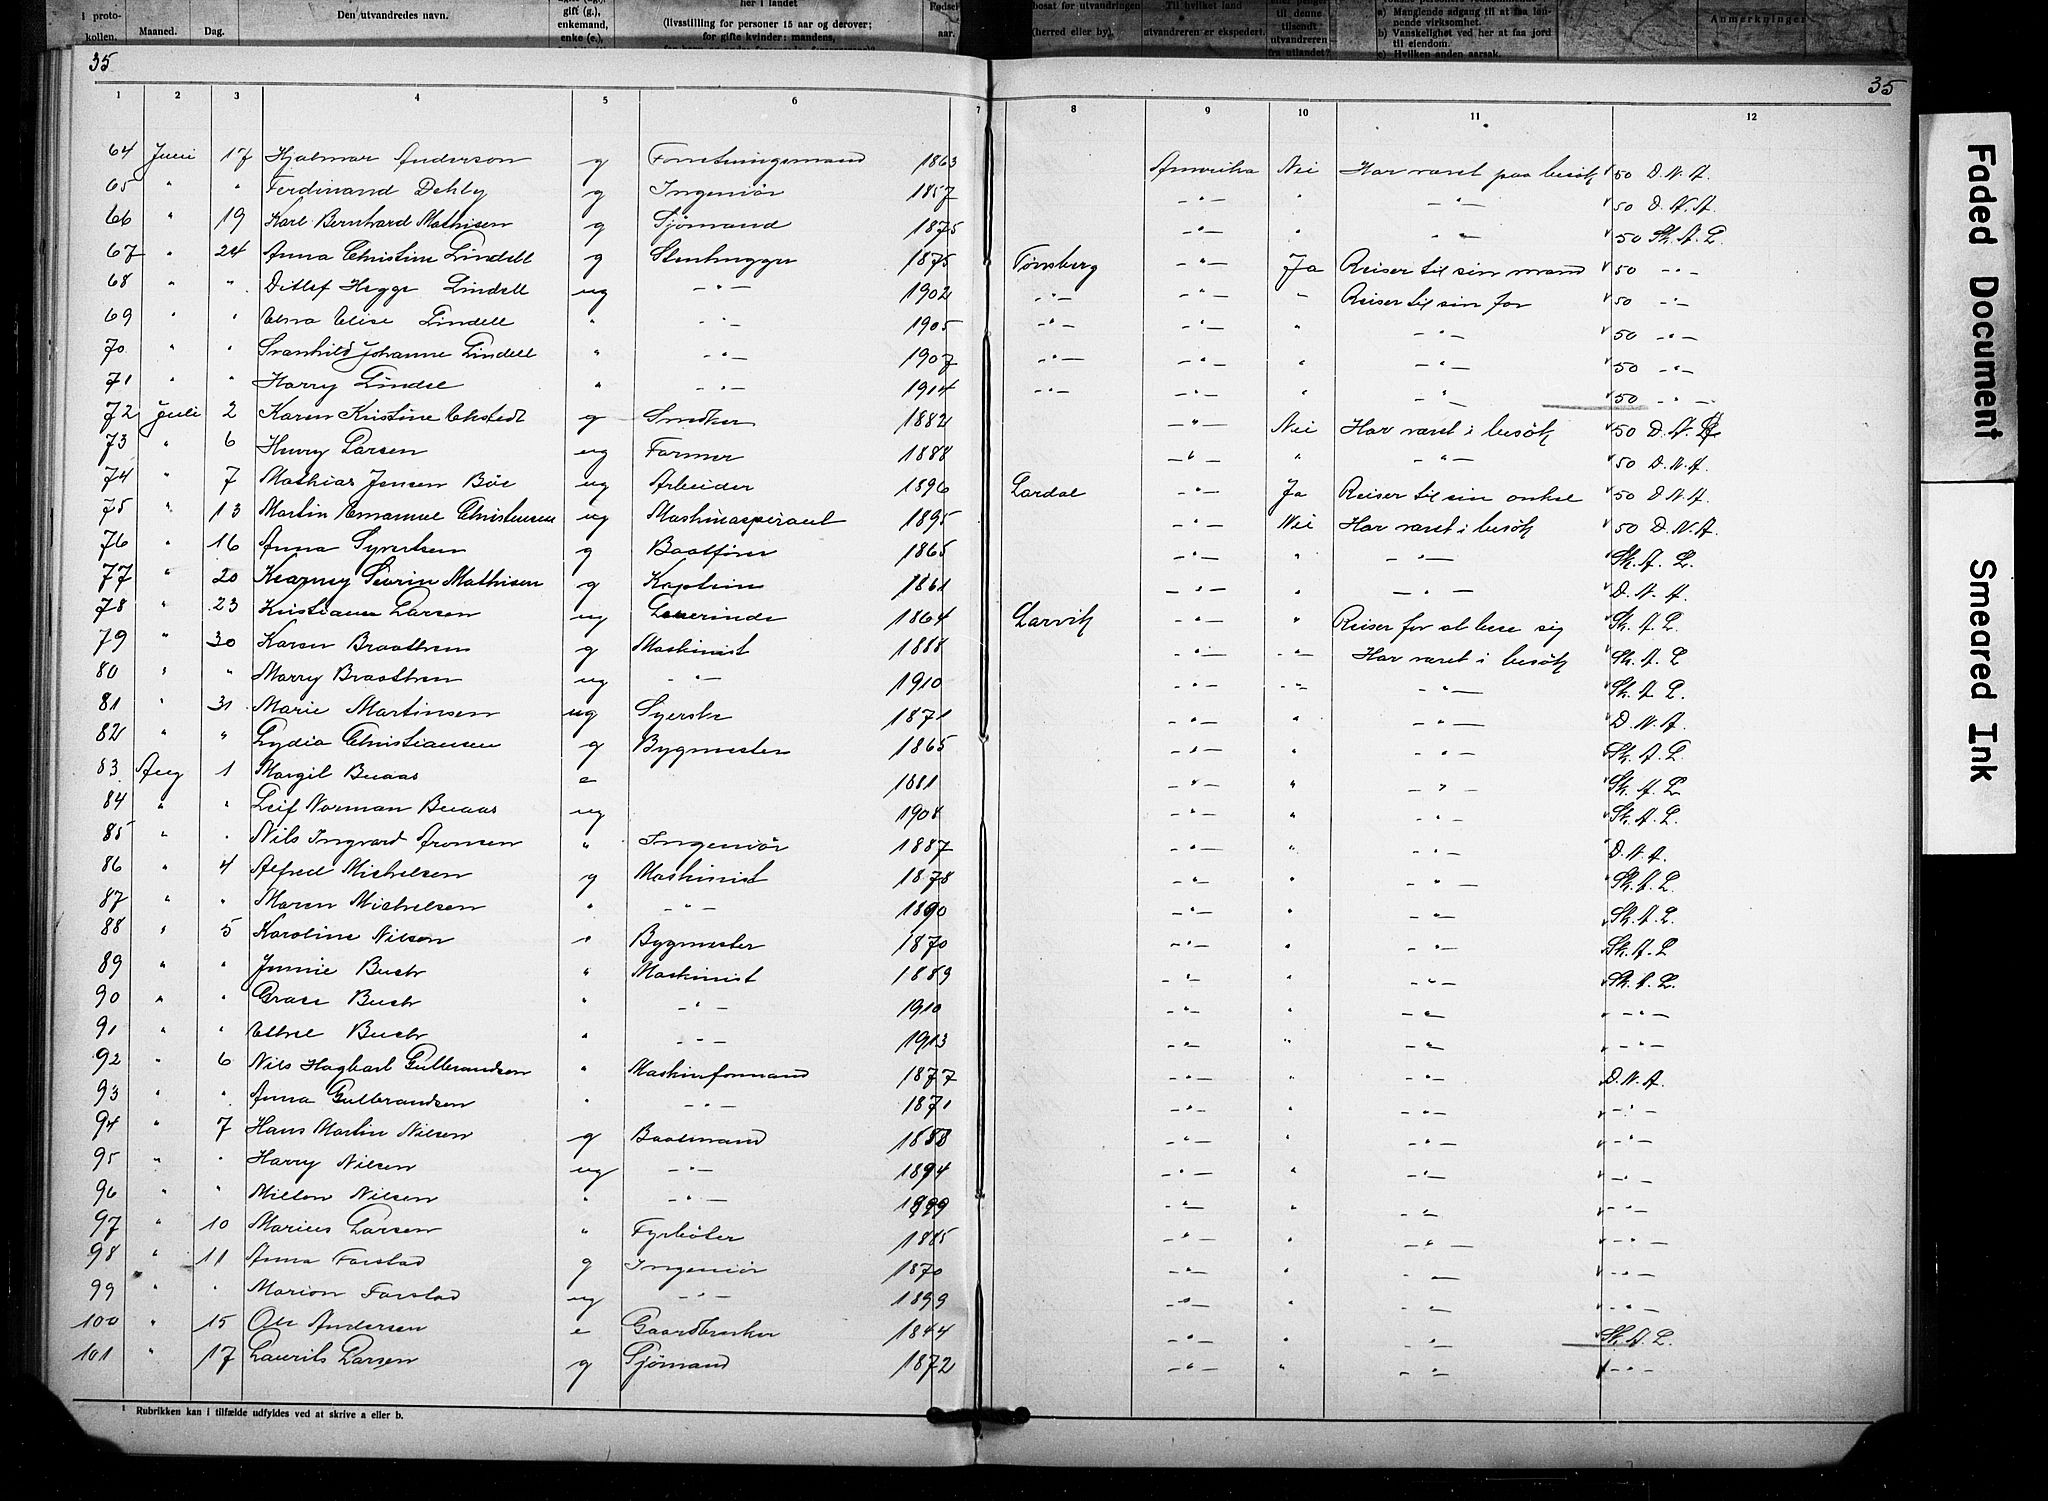 i proto-
kollen.
Maaned.
Dag.
Den utvandredes navn.
gift (g.),
enkemand,
enke (e.),
her i landet
(livsstilling for personer 15 aar og derover;
for gifte kvinder: mandens,
Fødsels-
aar.
bosat før utvandringen
(herred eller by).
Til hvilket land
utvandreren er ekspedert.
eller penger
til denne
tilsendt
utvandreren
fra utlandet?
a) Manglende adgang til at faa løn-
nende virksomhet.
b) Vanskelighet ved her at faa jord
til eiendom.
c) Hvilken anden aarsak.
Anmerkninger
35 35
1 2 3 4 5 6 7 8 9 10 11 12
64 Juni 17 Hjalmar Anderson g Forretningsmand 1863 Amerika Nei Har været paa besök 50 D. N. A.
65 " " Ferdinand Dehly g Ingeniör 1857 -"- " -"- 50 D. N. A.
66 " 19 Karl Bernhard Mathisen g Sjömand 1875 -"- " -"- 50 Sk. A. L.
67 " 24 Anna Christine Lindell g Stenhugger 1875 Tønsberg -"- Ja Reiser til sin mand 50 -"-
68 " " Ditlef Hegge Lindell ug -"- 1902 -"- -"- " Reiser til sin far 50 -"-
69 " " Elna Elise Lindell " -"- 1905 -"- -"- " -"- 50 -"-
70 " " Svanhild Johanne Lindell " -"- 1907 -"- -"- " -"- 50 -"-
71 " " Harry Lindell " -"- 1914 -"- -"- " -"- 50 -"-
72 Juli 2 Karen Kristine Ekstedt g Snedker 1882 -"- Nei Har været i besök 50 D. N. A.
73 " 6 Henry Larsen ug Farmer 1888 -"- " -"- 50 D. N. A.
74 " 7 Mathias Jensen Böe ug Arbeider 1896 Lardal -"- Ja Reiser til sin onkel 50 D. N. A.
75 " 13 Martin Emanuel Christensen ug Maskinaspirant 1895 -"- Nei Har været i besök 50 D. N. A.
76 " 16 Anna Syvertsen g Baatförer 1865 -"- " -"- Sk. A. L.
77 " 20 Kearney Severin Mathisen g Kaptein 1861 -"- " -"- D. N. A.
78 " 23 Kristiane Larsen ug Lærerinde 1864 Larvik -"- " Reiser for at lære sig Sk. A. L.
79 " 30 Karen Braathen g Maskinist 1888 -"- -"- Har været i besök Sk. A. L
80 " " Marry Braathen ug -"- 1910 -"- -"- -"- Sk. A. L.
81 " 31 Marie Martinsen ug Syerske 1871 -"- " -"- D. N. A.
82 " " Lydia Christiansen g Bygmester 1865 -"- " -"- Sk. A. L.
83 Aug 1 Margit Buaas e 1881 -"- " -"- Sk. A. L.
84 " " Leif Norman Buaas ug 1904 -"- " -"- Sk. A. L.
85 " " Nils Ingvard Aronsen " Ingeniör 1887 -"- " -"- D. N. A.
86 " 4 Alfred Michelsen g Maskinist 1878 -"- " -"- Sk. A. L.
87 " " Maren Michelsen " -"- 1890 -"- " -"- Sk. A. L.
88 " 5 Karoline Nilsen " Bygmester 1870 -"- " -"- Sk. A. L
89 " " Jennie Buch " Maskinist 1889 -"- " -"- Sk. A. L.
90 " " Grace Buch " -"- 1910 -"- " -"- -"-
91 " " Ethel Buch " -"- 1913 -"- " -"- -"-
92 " 6 Nils Hagbart Gulbrandsen " Maskinformand 1877 -"- " -"- D. N. A.
93 " " Anna Gulbrandsen " -"- 1871 -"- " -"- -"-
94 " 7 Hans Martin Nilsen g Baatsmand 1888 -"- " -"- -"-
95 " " Harry Nilsen ug -"- 1894 -"- " -"- -"-
96 " " Milton Nilsen " -"- 1899 -"- " -"- -"-
97 " 10 Marius Larsen " Fyrböter 1885 -"- " -"- -"-
98 " 11 Anna Farstad g Ingeniör 1870 -"- " -"- -"-
99 " " Marion Farstad ug -"- 1899 -"- " -"- -"-
100 " 15 Ole Andersen e Gaardbruker 1844 -"- " -"- Sk. A. L.
101 " 17 Laurits Larsen g Sjömand 1872 -"- " -"- -"-
1 Rubrikken kan i tilfælde udfyldes ved at skrive a eller b.
Faded Document
Smeared Ink